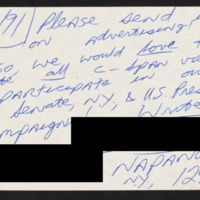 /91) Please send
on advertising,
so, we would love t
te all C-SPAN va
participate in ou
Senate, NY, & U.S. Pres
mpaign! Write
NAPANO
NY, 12